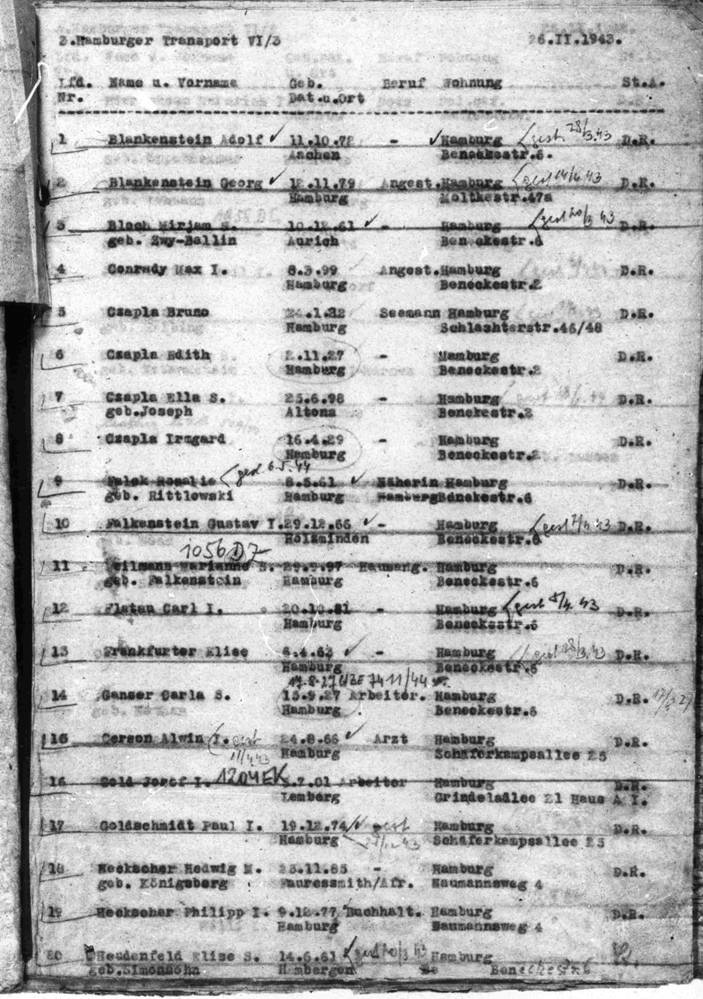 2.Hamburger Transport VI/3 26.II.1943.
Lfd. Name u. Vorname Geb. Beruf Wohnung St.A.
Nr. Dat.u.Ort
1 Blankenstein Adolf ✓ 11.10.72 - ✓ Hamburg gest. 28/3.43 D.R.
Aachen Beneckestr.6.
2 Blankenstein Georg ✓ 12.11.79 Angest.Hamburg gest 14/4 43 D.R.
Hamburg Moltkestr.47a
3 Bloch Mirjam S. 10.12.61 ✓ - Hamburg gest 20/3 43 D.R.
geb. Zwy-Ballin Aurich Beneckestr.6
4 Conrady Max I. 8.3.99 Angest.Hamburg D.R.
Hamburg Beneckestr.2
5 Czapla Bruno 24.1.22 Seemann Hamburg D.R.
Hamburg Schlachterstr.46/48
6 Czapla Edith 2.11.27 - Hamburg D.R.
Hamburg Beneckestr.2
7 Czapla Ella S. 25.6.98 - Hamburg D.R.
geb.Joseph Altona Beneckestr.2
8 Czapla Irmgard 16.4.29 - Hamburg D.R.
Hamburg Beneckestr.2
9 Falck Rosalie gest 6.5.44 8.5.61 ✓ Näherin Hamburg D.R.
geb. Rittlowski Hamburg Hamburg Beneckestr.6
10 Falkenstein Gustav I.29.12.66 ✓ - Hamburg gest 7/4 43 D.R.
Holzminden Beneckestr.6
1056 DZ
11 Feilmann Marianne S. 29.9.97 Hausang. Hamburg D.R.
geb. Falkenstein Hamburg Beneckestr.6
12 Flatau Carl I. 20.10.81 - Hamburg gest 8/4 43 D.R.
Hamburg Beneckestr.6
13 Frankfurter Elise 6.4.63 ✓ - Hamburg gest 28/3.43 D.R.
Hamburg Beneckestr.6
14 Ganser Carla S. 15.9.27 Arbeiter. Hamburg D.R.
Hamburg Beneckestr.6
15 Gerson Alwin I. gest 24.8.66 ✓ Arzt Hamburg D.R.
Hamburg Schäferkampsallee 25
16 Gold Josef I. 1204 EK 5.7.01 Arbeiter Hamburg D.R.
Lemberg Grindelallee 21 Haus A I.
17 Goldschmidt Paul I. 19.12.74 ✓ gest Hamburg D.R.
Hamburg Schäferkampsallee 25
18 Heckscher Hedwig S. 23.11.85 - Hamburg D.R.
geb. Königsberg Fauressmith/Afr. Naumannsweg 4
19 Heckscher Philipp I. 9.12.77 Buchhalt. Hamburg D.R.
Hamburg Naumannsweg 4
20 Heudenfeld Elise S. 14.6.61 gest 20/3 43 Hamburg
geb.Simonsohn Hambergen Beneckestr 6